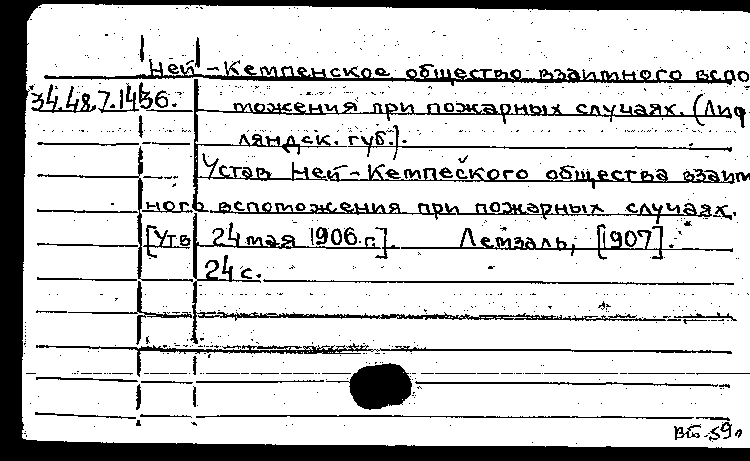 Ней-Кемпенское общество взаимного вспо
34.48.7.1436.можения при пожарных случаях. (Лиф
ляндск. губ.).
Устав Ней-Кемпеского общества взаим
ного вспоможения при пожарных случаях.
[Утв. 24 мая 1906 г.]. Лемзаль, [1907].
24 с.